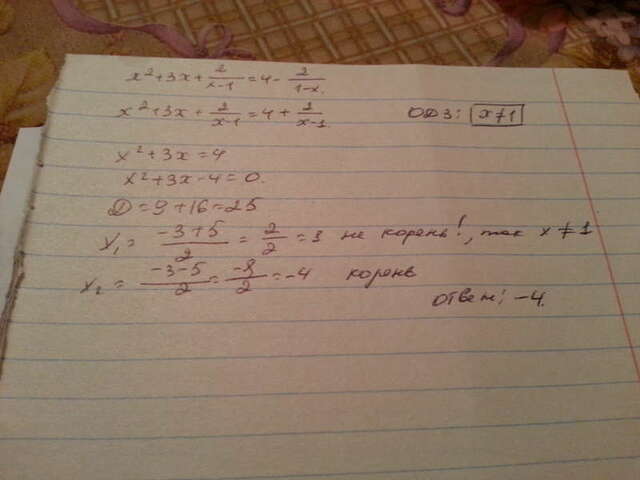 x²+3x+2/(x-1)=4-2/(1-x).
x²+3x+2/(x-1)=4+2/(x-1) ОДЗ: x≠1
x²+3x=4
x²+3x-4=0.
D=9+16=25
x₁=(-3+5)/2=2/2=1 не корень!, так x≠1
x₂=(-3-5)/2=-8/2=-4 корень
ответ: -4.